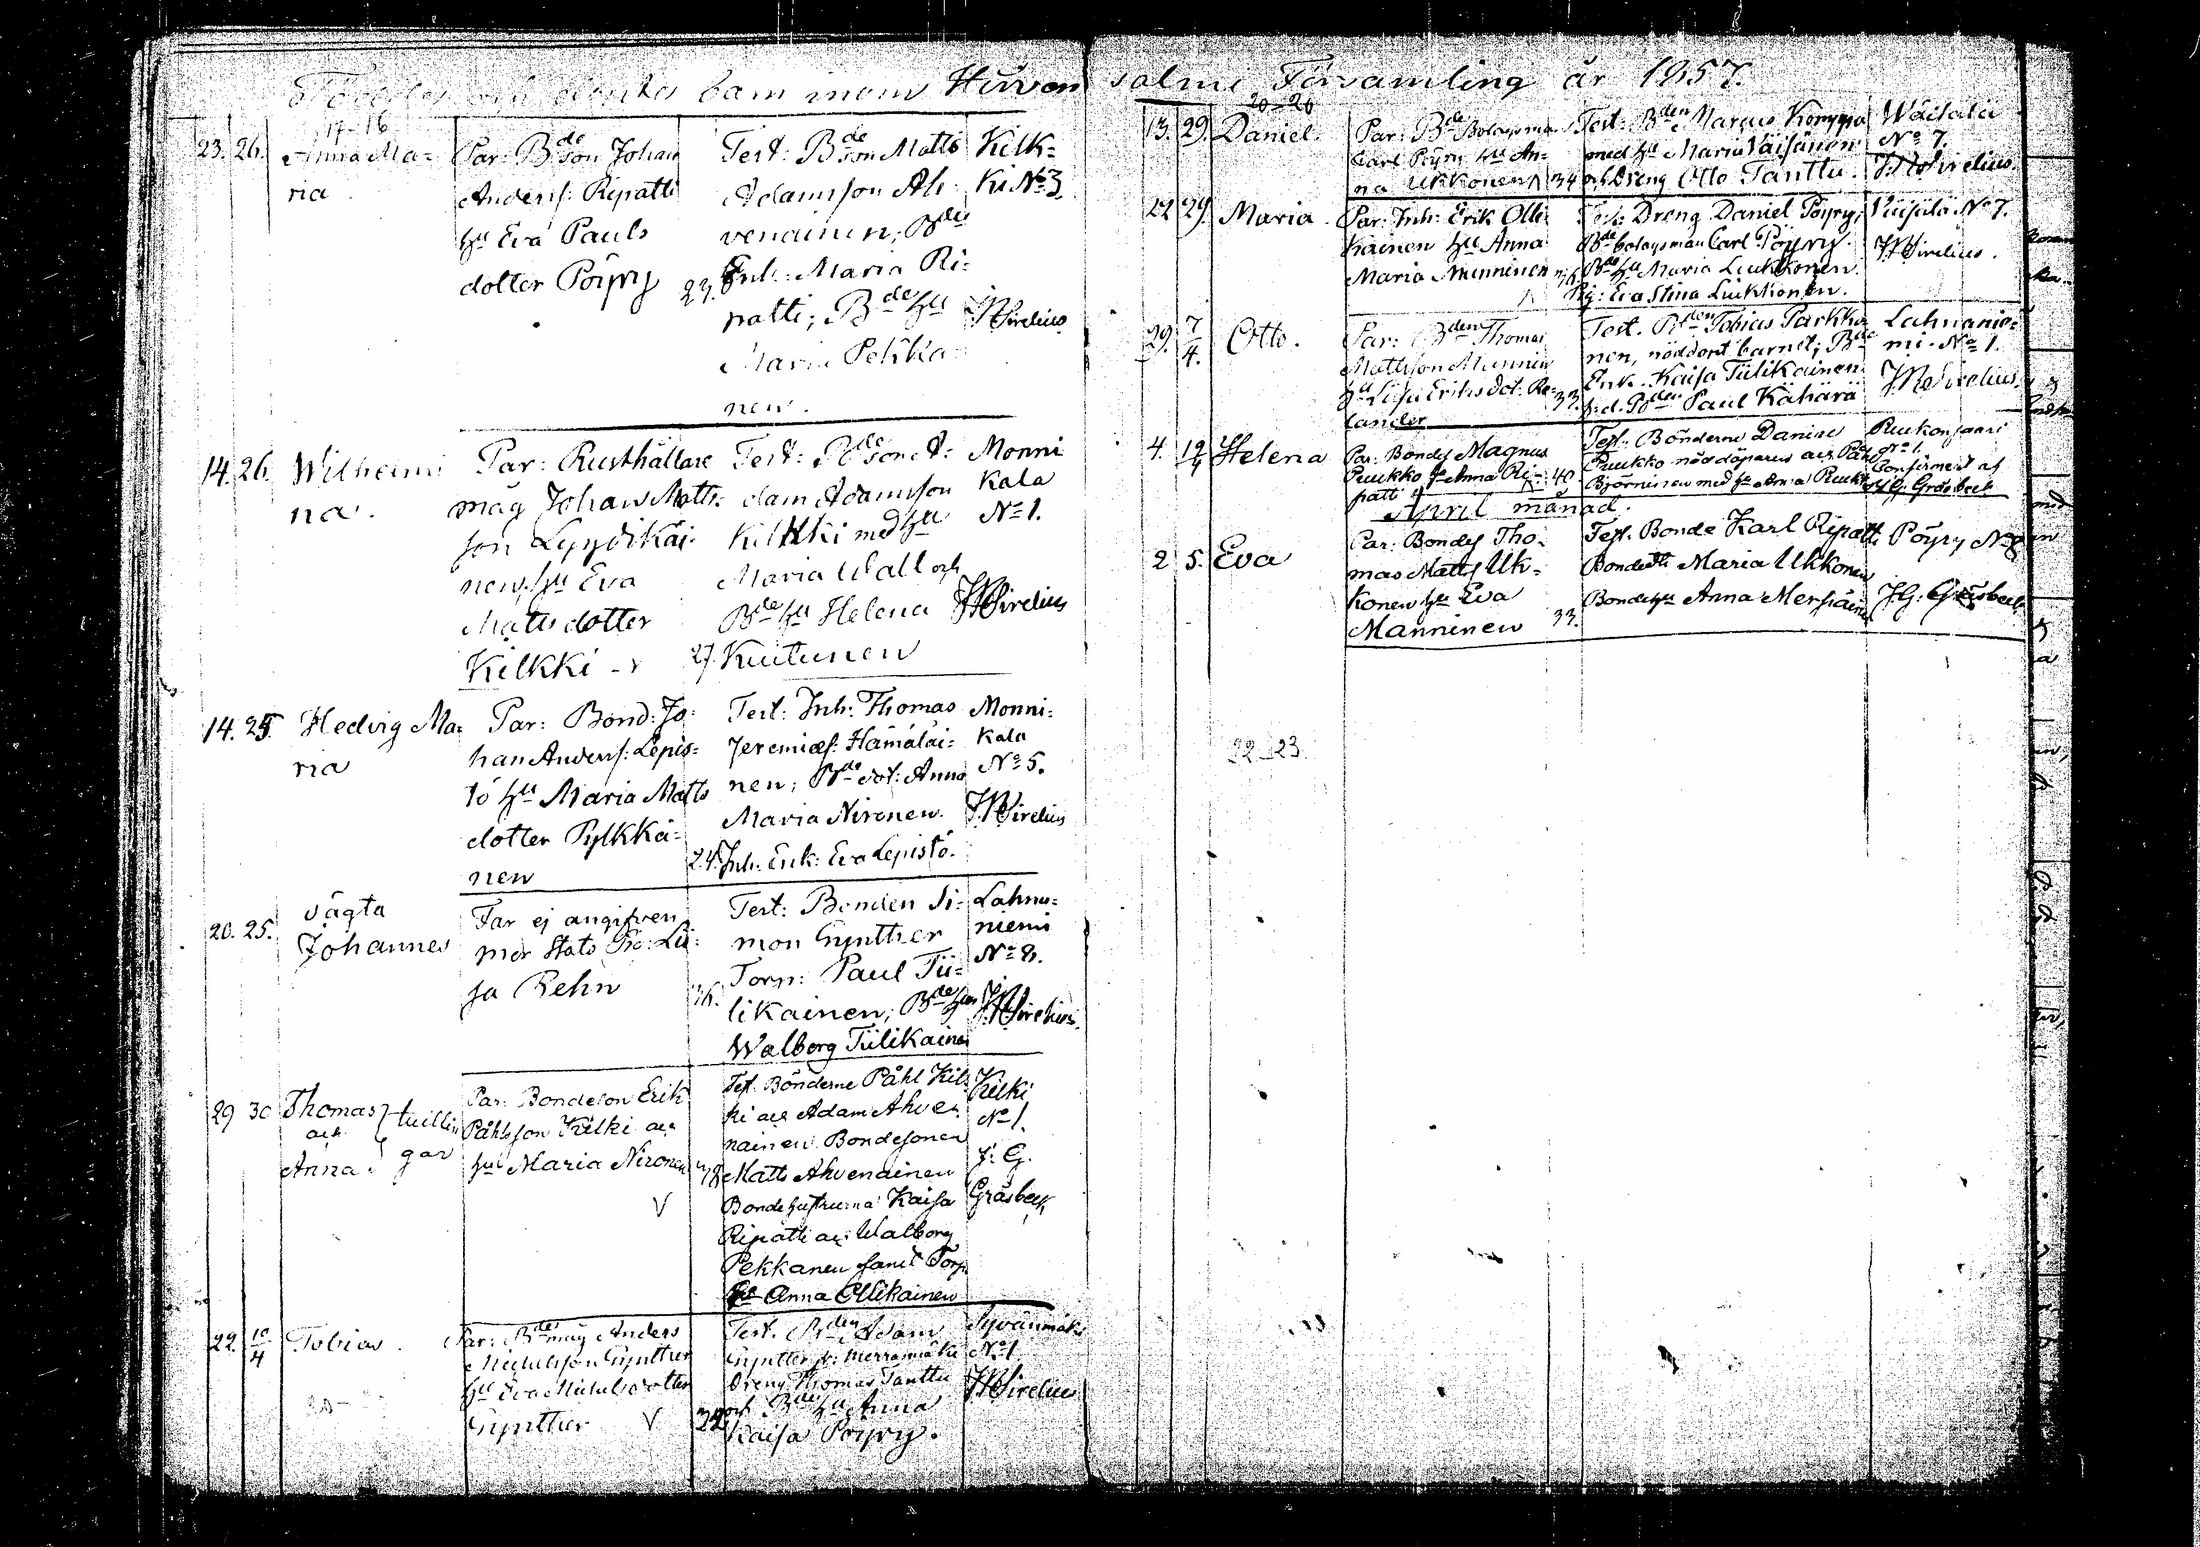 Födde och döpte barn inom Hirven salmi Församling år 1857.
17-16
23. 26. Anna Ma=
ria
Par: Bdeson Johan
Anderss: Ripatti
hu Eva Pauls
dotter Pöyry 27.
Test: Bdeson Matts
Adamsson Ah-
venainen; Bdes
Enk: Maria Ri=
patti; Bde hu
Maria Pekka
nen.
Kilk=
ki No 3.
JWirelius
14. 26. Wilhelmi
na.
Par: Rusthållare
måg Johan Matts
son Lyydikäi
nen, hu Eva
Matts dotter
Kilkki 27.
Test: Bdeson A:
dam Adamsson
Kilkki med hu
Maria Wall och
Bde hu Helena
Kuitunen
Monni
kala
No 1.
JWirelius
14. 25. Hedvig Ma=
ria
Par: Bond: Jo=
han Anderss: Lepis=
tö hu Maria Matts
dotter Pylkkä=
nen 24.
Test: Inh: Thomas
Jeremiæs: Hämäläi=
nen; Bde dot: Anna
Maria Nironen.
Inh: Enk: Eva Lepistö.
Monni=
kala
No 5.
JWirelius
20. 25. oägta
Johannes
Far ej angifven
mor Stats Lii=
sa Rehn 36.
Test: Bonden Si=
mon Gynther
Torp: Paul Tii=
likainen; Bde hu
Walborg Tiilikainen
Lahna=
niemi
No 8.
JWirelius
29 30 Thomas
och
Anna
tvillin
gar
Par: Bondeson Erik
Påhlsson Kilki och
hu Maria Nironen
Test. Bönderne Påhl Kilk
ki och Adam Ahve-
nainen Bondesonen
Matts Ahvenainen
Bondehustruerna Kaisa
Ripatti och Walborg
Pekkanen samt Torp
hu Anna Ollikainen
Kilki
No 1.
J: G.
Gråsbeck
22. 10/4 Tobias.
Par: Bdes måg Anders
Michelsson Gynther
hu Eva Michelsdotter
Gynther 32.
Test. Bden Adam
Gynther fr: Merranmäki
Dreng Thomas Tanttu
och Bdes hu Anna
Kaisa Pöyry.
Syvänmäki
No 1
JWirelius
20-20
13. 29. Daniel.
Par: Bde Bolagsman
Carl Pöyry hu An=
na Ukkonen 34
Test: Bden Marcus Komppa
med hu Maria Väisänen
och Dreng Otto Tanttu.
Wäisälä
No 7.
JWirelius.
22 29. Maria.
Par: Inh: Erik Olli
kainen hu Anna
Maria Manninen
Test: Dreng Daniel Pöyry;
Bde bolagsman Carl Pöyry.
Bde hu Maria Liukkonen.
Pig: Eva Stina Liukkonen.
Väisälä No 7.
JWirelius.
29. 7/4. Otto.
Par: Bden Thomas
Mattsson Mannin
hu Lisa Eriks dot: Re=
lander 33.
Test. Bden Tobias Parkko
nen, nöddöpt barnet; Bde
Enk. Kaisa Tiilikainen
f.d. Bden Paul Kähärä
Lahnanie=
mi. No 1.
JWirelius.
4. 12/4 Helena
Par: Bonde Magnus
Puukko hu Anna Ri- 40
patti
Test. Bönderne Daniel
Puukko nöddöparen och Påhl
Björninen med hu Anna Puukko
Puukonsaari
No 1.
Confirmerat af
J.G. Gråsbeck
April månad.
2 5. Eva
Par: Bonde Tho-
mas Matts Uk=
konen hu Eva
Manninen 33.
Test. Bonde Karl Ripatti
Bonded: Maria Ukkonen
Bondehu Anna Mersäinen
Pöyry No 8
J.G. Gråsbeck
22-23